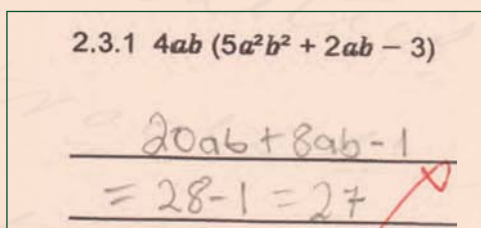 2.3.1 4ab (5a²b² + 2ab – 3)
20ab + 8ab - 1
= 28 - 1 = 27